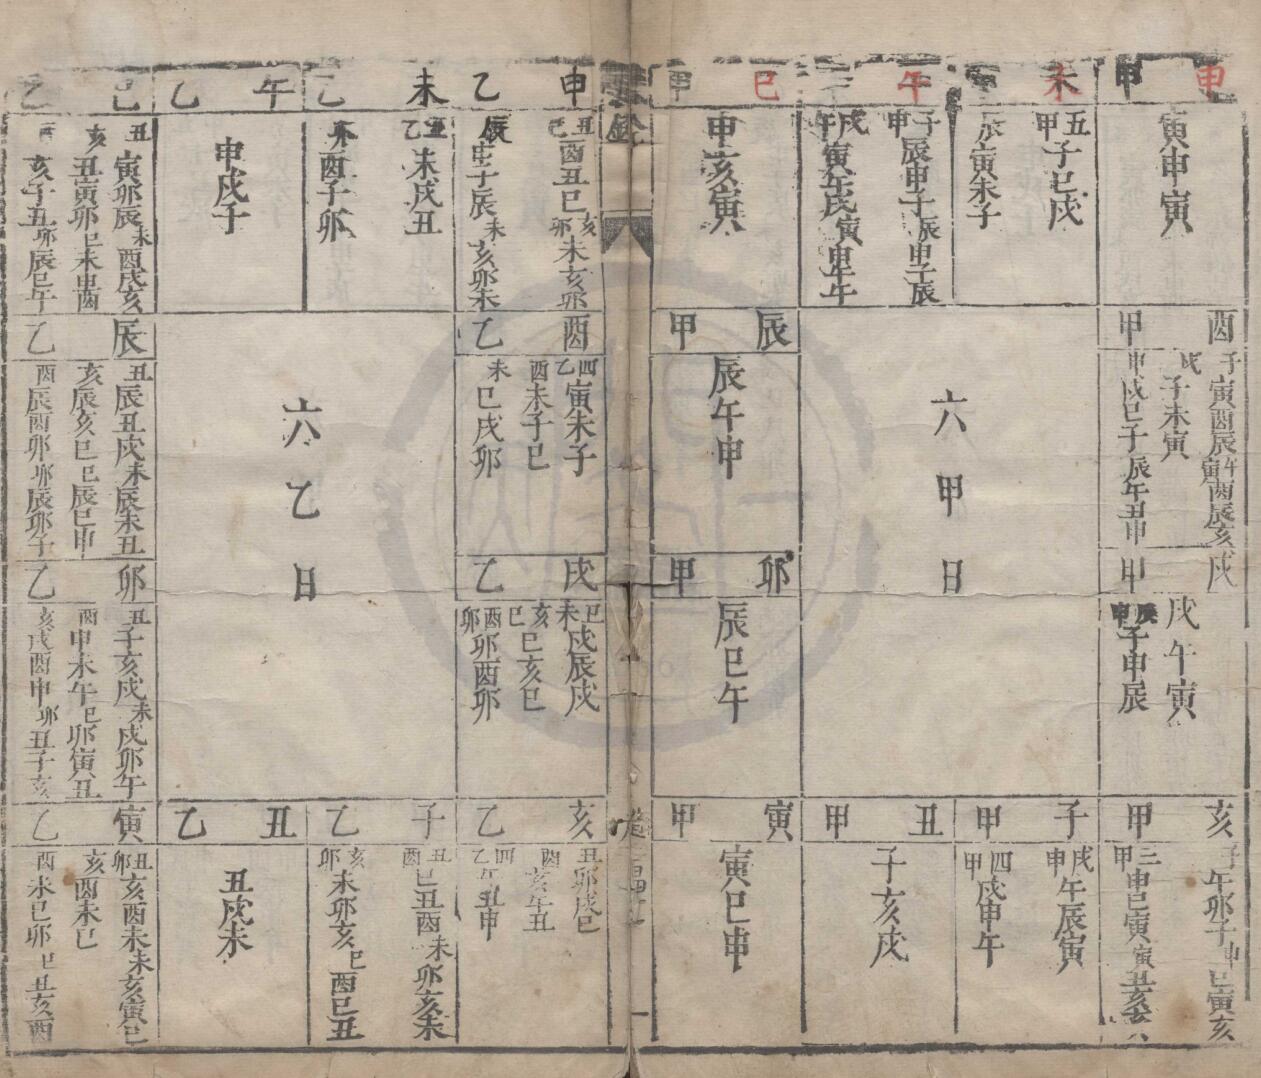 甲 申
寅申寅
甲 未
丑甲
子巳戌
辰
寅未子
午
子甲
辰申子
辰
申子辰
戌午
寅午戌
寅
申午
甲 巳
申亥寅
甲 辰
辰午申
甲 卯
辰巳午
甲 寅
寅巳申
甲 丑
子亥戌
甲 子
戌申
午辰寅
四甲
戌申午
甲 亥
子
午卯子
申
巳寅亥
三甲
申巳寅
寅
甲 戌
戌午寅
辰申
子申辰
甲 酉
子
寅酉辰
午寅
酉辰亥
戌
子未寅
申
戌巳子
辰
午丑申
六甲日
乙 申
丑巳
酉丑巳
亥卯
未亥卯
辰
申子辰
未
亥卯未
乙 未
丑乙
未戌丑
卯
酉子卯
乙 午
申戌子
乙 巳
丑
寅卯辰
未
酉戌亥
亥
丑寅卯
巳
未申酉
酉
亥子丑
卯
辰巳午
乙 辰
丑
辰丑戌
未
辰未丑
亥
辰亥巳
巳
辰巳申
酉
辰酉卯
卯
辰卯子
乙 卯
丑
子亥戌
未
戌卯午
酉
申未午
巳
卯寅丑
亥
戌酉申
卯
丑子亥
乙 寅
丑卯
亥酉未
未
亥寅巳
亥
酉未巳
酉
未巳卯
巳
丑亥酉
乙 丑
丑戌未
乙 子
丑酉
巳丑酉
未
卯亥未
亥卯
未卯亥
巳
酉巳丑
乙 亥
丑
卯戌巳
酉
亥午丑
四乙
午丑申
乙 戌
巳未
戌辰戌
亥巳
巳亥巳
酉卯
卯酉卯
乙 酉
四乙
寅未子
酉
未子巳
未
巳戌卯
六乙日